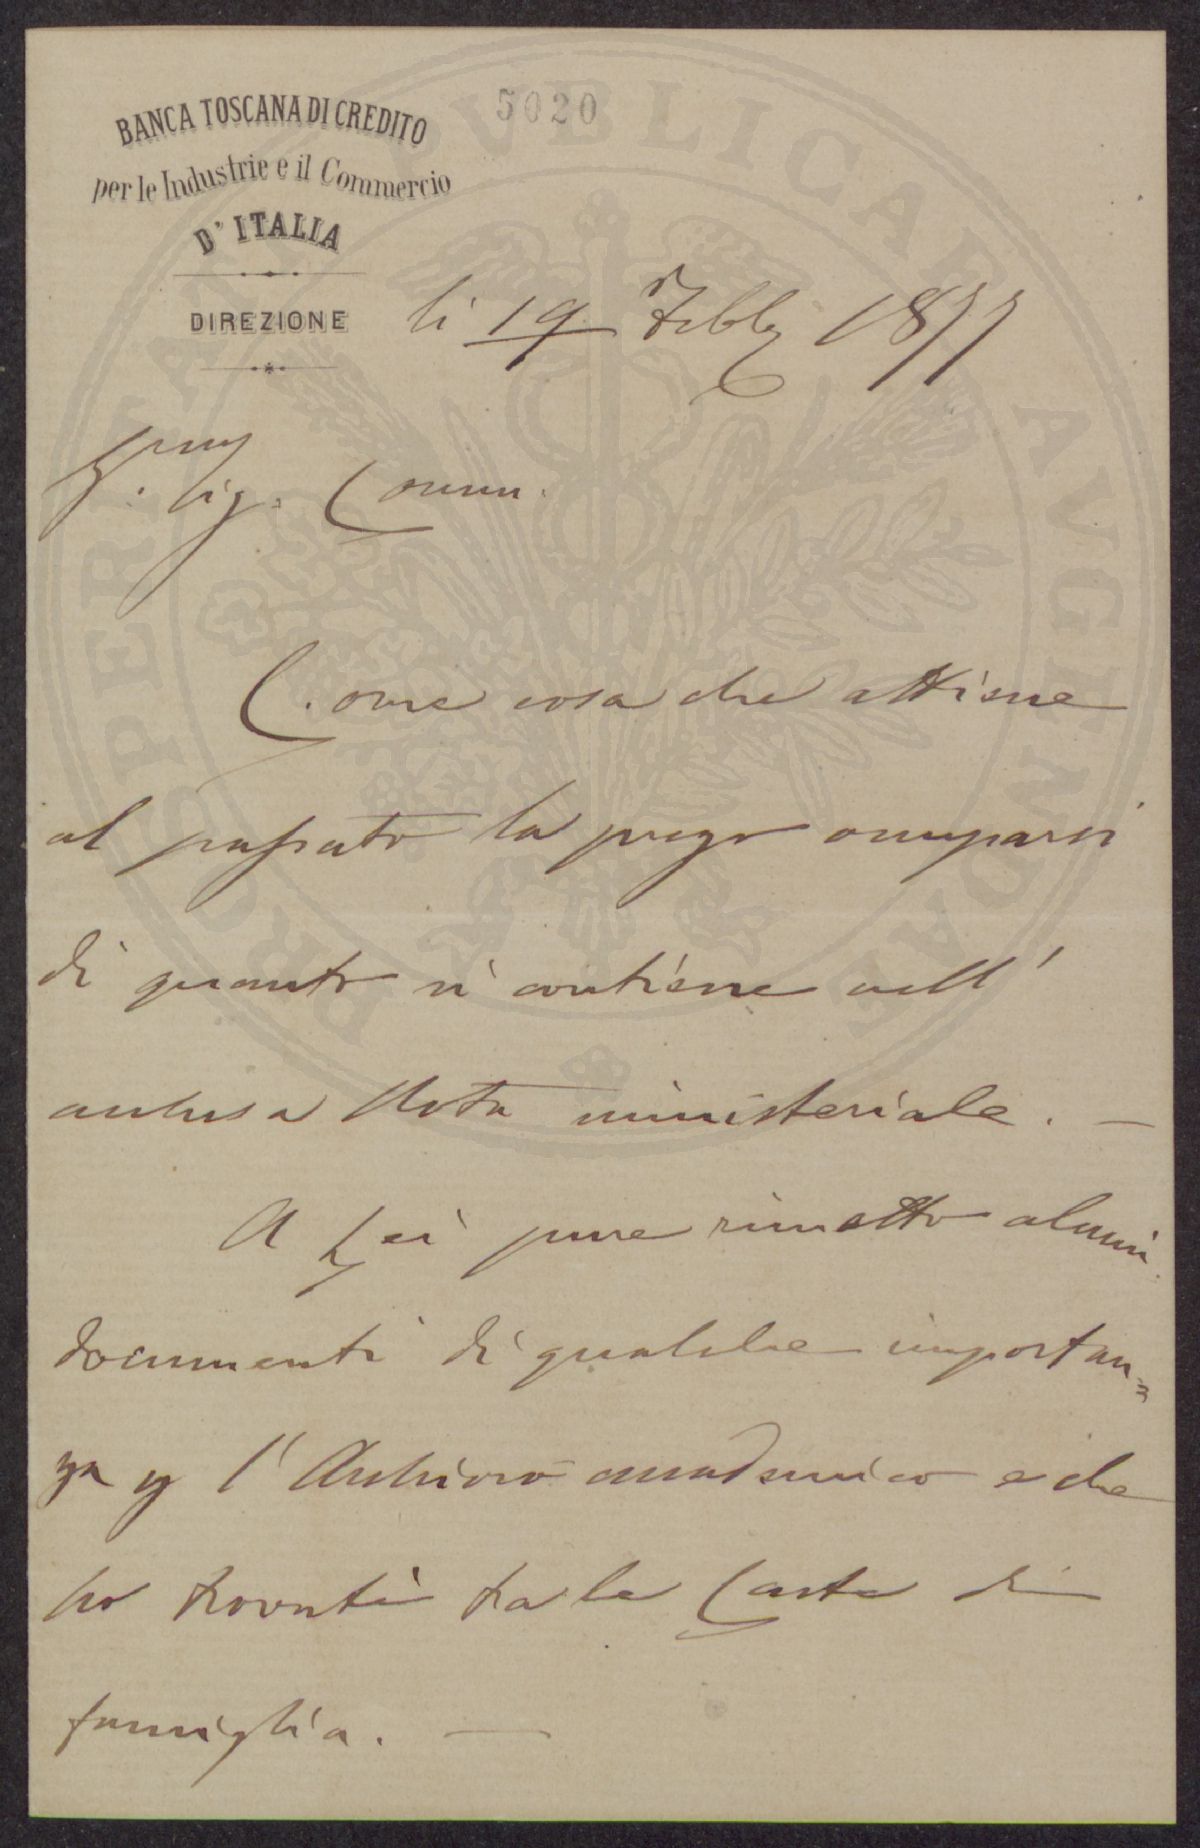 5020
BANCA TOSCANA DI CREDITO
per le Industrie e il Commercio
D'ITALIA
DIREZIONE
li 19 Febb 1877
Sig. Comm.
Come cosa che attiene
al passato la prego occuparsi
di quanto si contiene nell'
anchiusa Nota ministeriale. —
A Lei pure rimetto alcuni
documenti di qualche importan=
za p l'Archivio accademico e che
ho trovati tra le Carte di
famiglia. —
PROSPERITATI PVBLICAE AVGENDAE